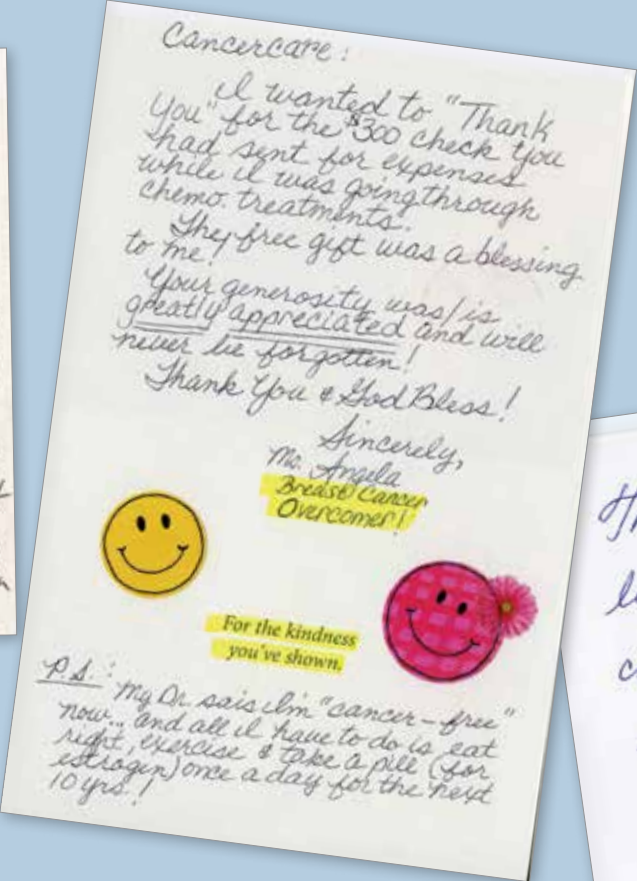 Cancercare:
I wanted to "Thank
You" for the $300 check you
had sent for expenses
while I was going through
chemo. treatments.
They free gift was a blessing
to me!
Your generosity was/is
greatly appreciated and will
never be forgotten!
Thank You & God Bless!
Sincerely,
Ms. Angela
Breast Cancer
Overcomer!
For the kindness
you've shown.
P.S.:
My Dr. sais I'm "cancer-free"
now... and all I have to do is eat
right, exercise & take a pill (for
estrogen) once a day for the next
10 yrs!